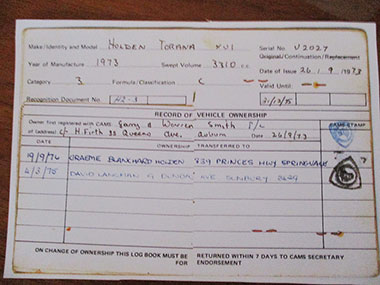 Make/Identity and Model HOLDEN TORANA XU1 Serial No V2027
Original/Continuation/Replacement
Year of Manufacture 1973 Swept Volume 3310 c.c. Date of Issue 26.9.1973
Category 3 Formula/Classification C Valid Until
Recognition Document No. 31/12/75
RECORD OF VEHICLE OWNERSHIP
Owner first registered with CAMS Garry & Warren Smith P/L CAMS STAMP
of (address) c/o H. Firth 33 Queens Ave, Auburn Date 26/9/73
DATE OWNERSHIP TRANSFERRED TO
19/9/74 GRAEME BLANCHARD HOLDEN 839 PRINCES HWY SPRINGVALE
DAVID LANGMAN 9 AVE SUNBURY 3429
ON CHANGE OF OWNERSHIP THIS LOG BOOK MUST BE RETURNED WITHIN 7 DAYS TO CAMS SECRETARY
FOR ENDORSEMENT